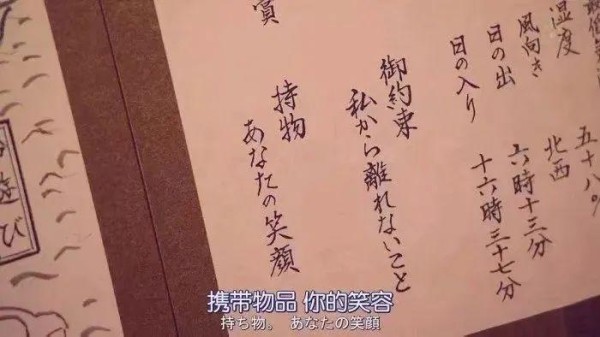 最低気
湿度 五十八%
風向き 北西
日の出 六時十三分
日の入り 十六時三十七分
御約束
私から離れないこと
賞
持物
あなたの笑顔
遊び
携带物品 你的笑容
持ち物。 あなたの笑顔